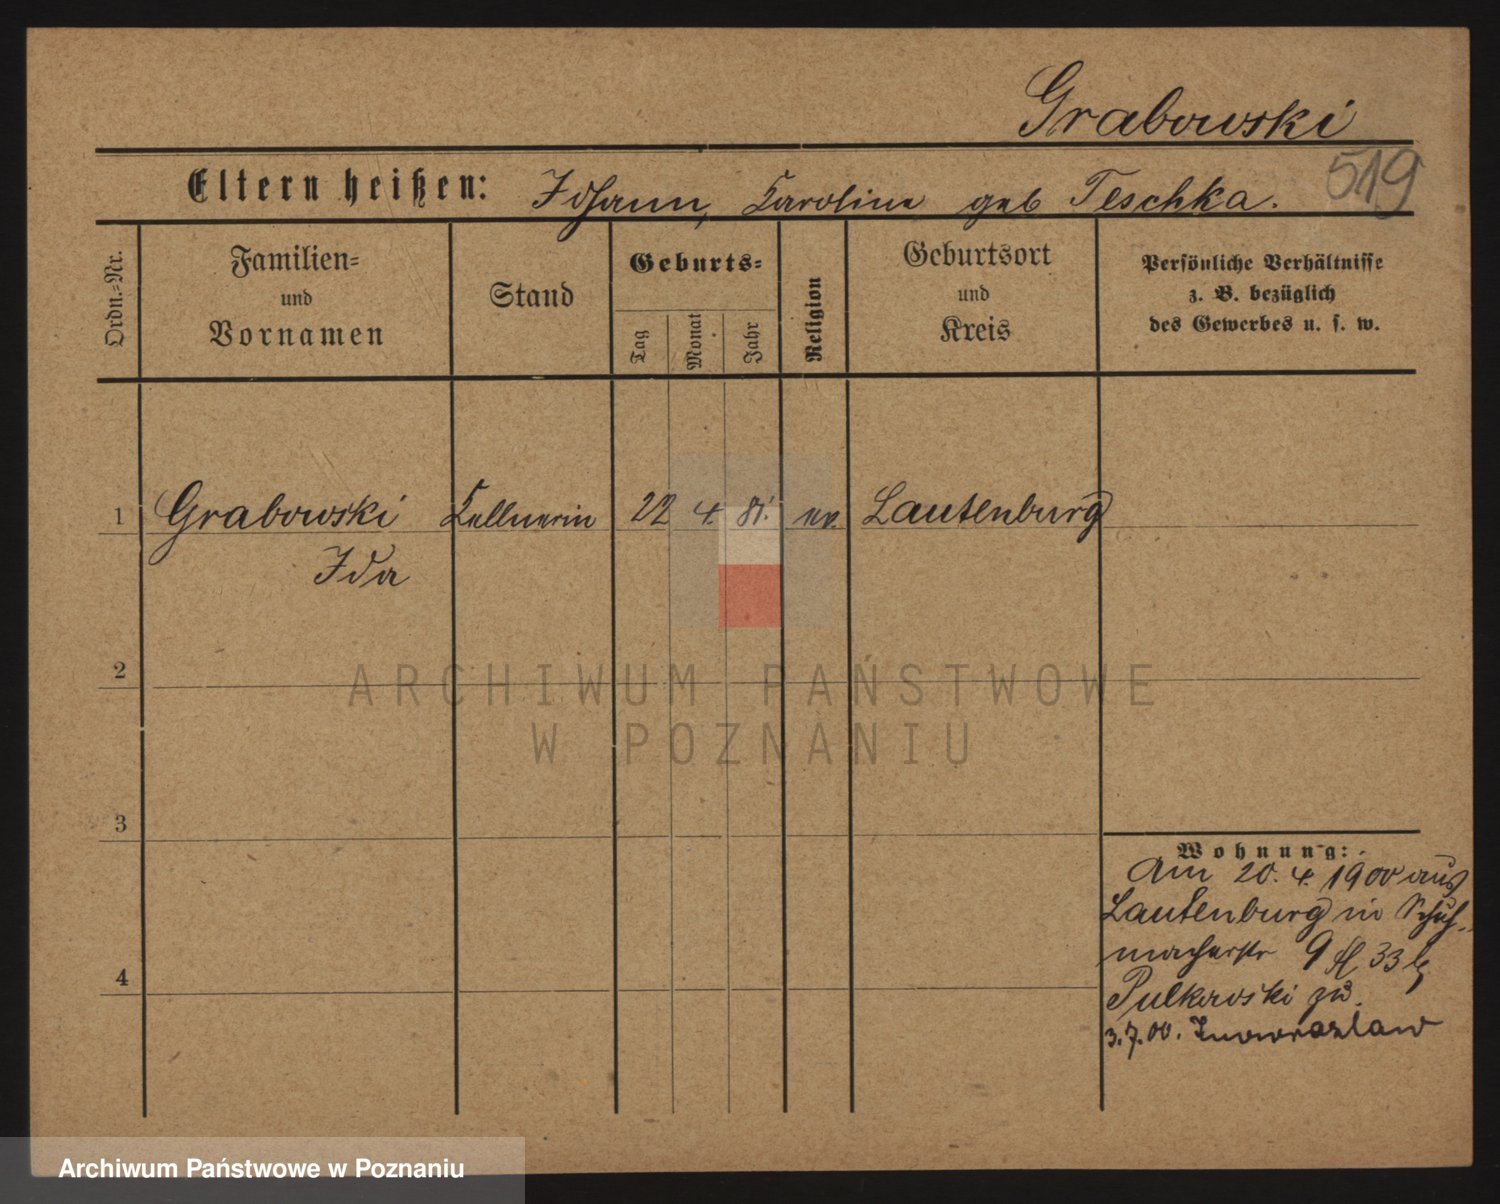 Grabowski
519
Eltern heißen: Johann, Karoline geb Teschka.
Ordn.-Nr.
Familien-
und
Vornamen
Stand
Geburts-
Tag
Monat
Jahr
Religion
Geburtsort
und
Kreis
Persönliche Verhältnisse
z. B. bezüglich
des Gewerbes u. s. w.
1 Grabowski Kellnerin 22 4. 81. ev. Lautenburg
Ida
2
ARCHIWUM PAŃSTWOWE
W POZNANIU
3
Wohnung:
Am 20. 4. 1900 aus
Lautenburg in Schuh-
macherstr 9 33
4
Pulkowski zu.
3.7.00. Inowrazlaw
Archiwum Państwowe w Poznaniu